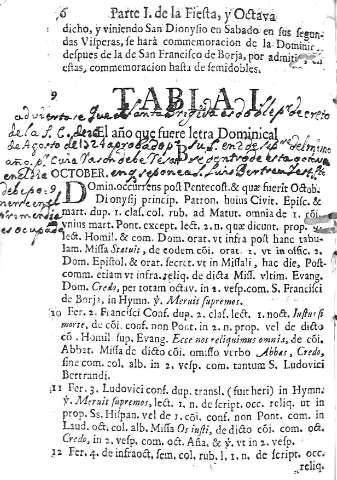 6 Parte I. de la Fiesta, y Octava
dicho, y viniendo San Dionysio en Sabado en sus segun-
das Visperas, se harà commemoracion de la Dominic.
despues de la de San Francisco de Borja, por admitir
estas, commemoracion hasta de semidobles.
9
TABLA I.
adviertase que Santa Brigida es doble pr. decreto
de la S. C. de
El año que fuere letra Dominical
de Agosto de 1724 aprobado pr. su S. en 2 de Sepre. del mismo
año. pr. cuia razon debe
dentro de esta octava
en el dia
OCTOBER.
en q. se pone a S. Luis Bertran
9 Domin. occurrens post Pentecost. & quæ fuerit Octob.
Dionysij princip. Patron. huius Civit. Episc. &
mart. dup. 1. clas. col. rub. ad Matut. omnia de 1. cõi
vnius mart. Pont. except. lect. 2. n. quæ dicunt. prop.
lect. Homil. & com. Dom. orat. vt infra post hanc tabu-
lam. Missa Statuit, de eodem cõi orat. 1. vt in offic. 2.
Dom. Epistol. & orat. secret. vt in Missali, hac die, Post-
comm. etiam vt infra. reliq. de dicta Miss. vltim. Evang.
Dom. Credo, per totam octav. in 2. vesp. com. S. Francisci
de Borja, in Hymn. ℣. Meruit supremos.
10 Fer. 2. Francisci Conf. dup. 2. clas. lect. 1. noct. Iustus si
morte, de cõi. conf. non Pont. in 2. n. prop. vel de dicto
cõ. Homil sup. Evang. Ecce nos reliquimus omnia, de cõi.
Abbat. Missa de dicto cõi. omisso verbo Abbas, Credo,
fine com col. alb. in 2. vesp. com. tantum S. Ludovici
Bertrandi.
11 Fer. 3. Ludovici conf. dup. transl. (fuit heri) in Hymn.
℣. Meruit supremos, lect. 1. n. de script. occ. reliq. vt in
prop. Ss. Hispan. vel de 1. cõi. conf. non Pont. com. in
Laud. oct. col. alb. Missa Os iusti, de dicto cõi. com. oct.
Credo, in 2. vesp. com. oct. Aña, & ℣. vt in 2. vesp.
12 Fer. 4. de infraoct, sem. col. rub. l. 1. n. de script. occ.
reliq.